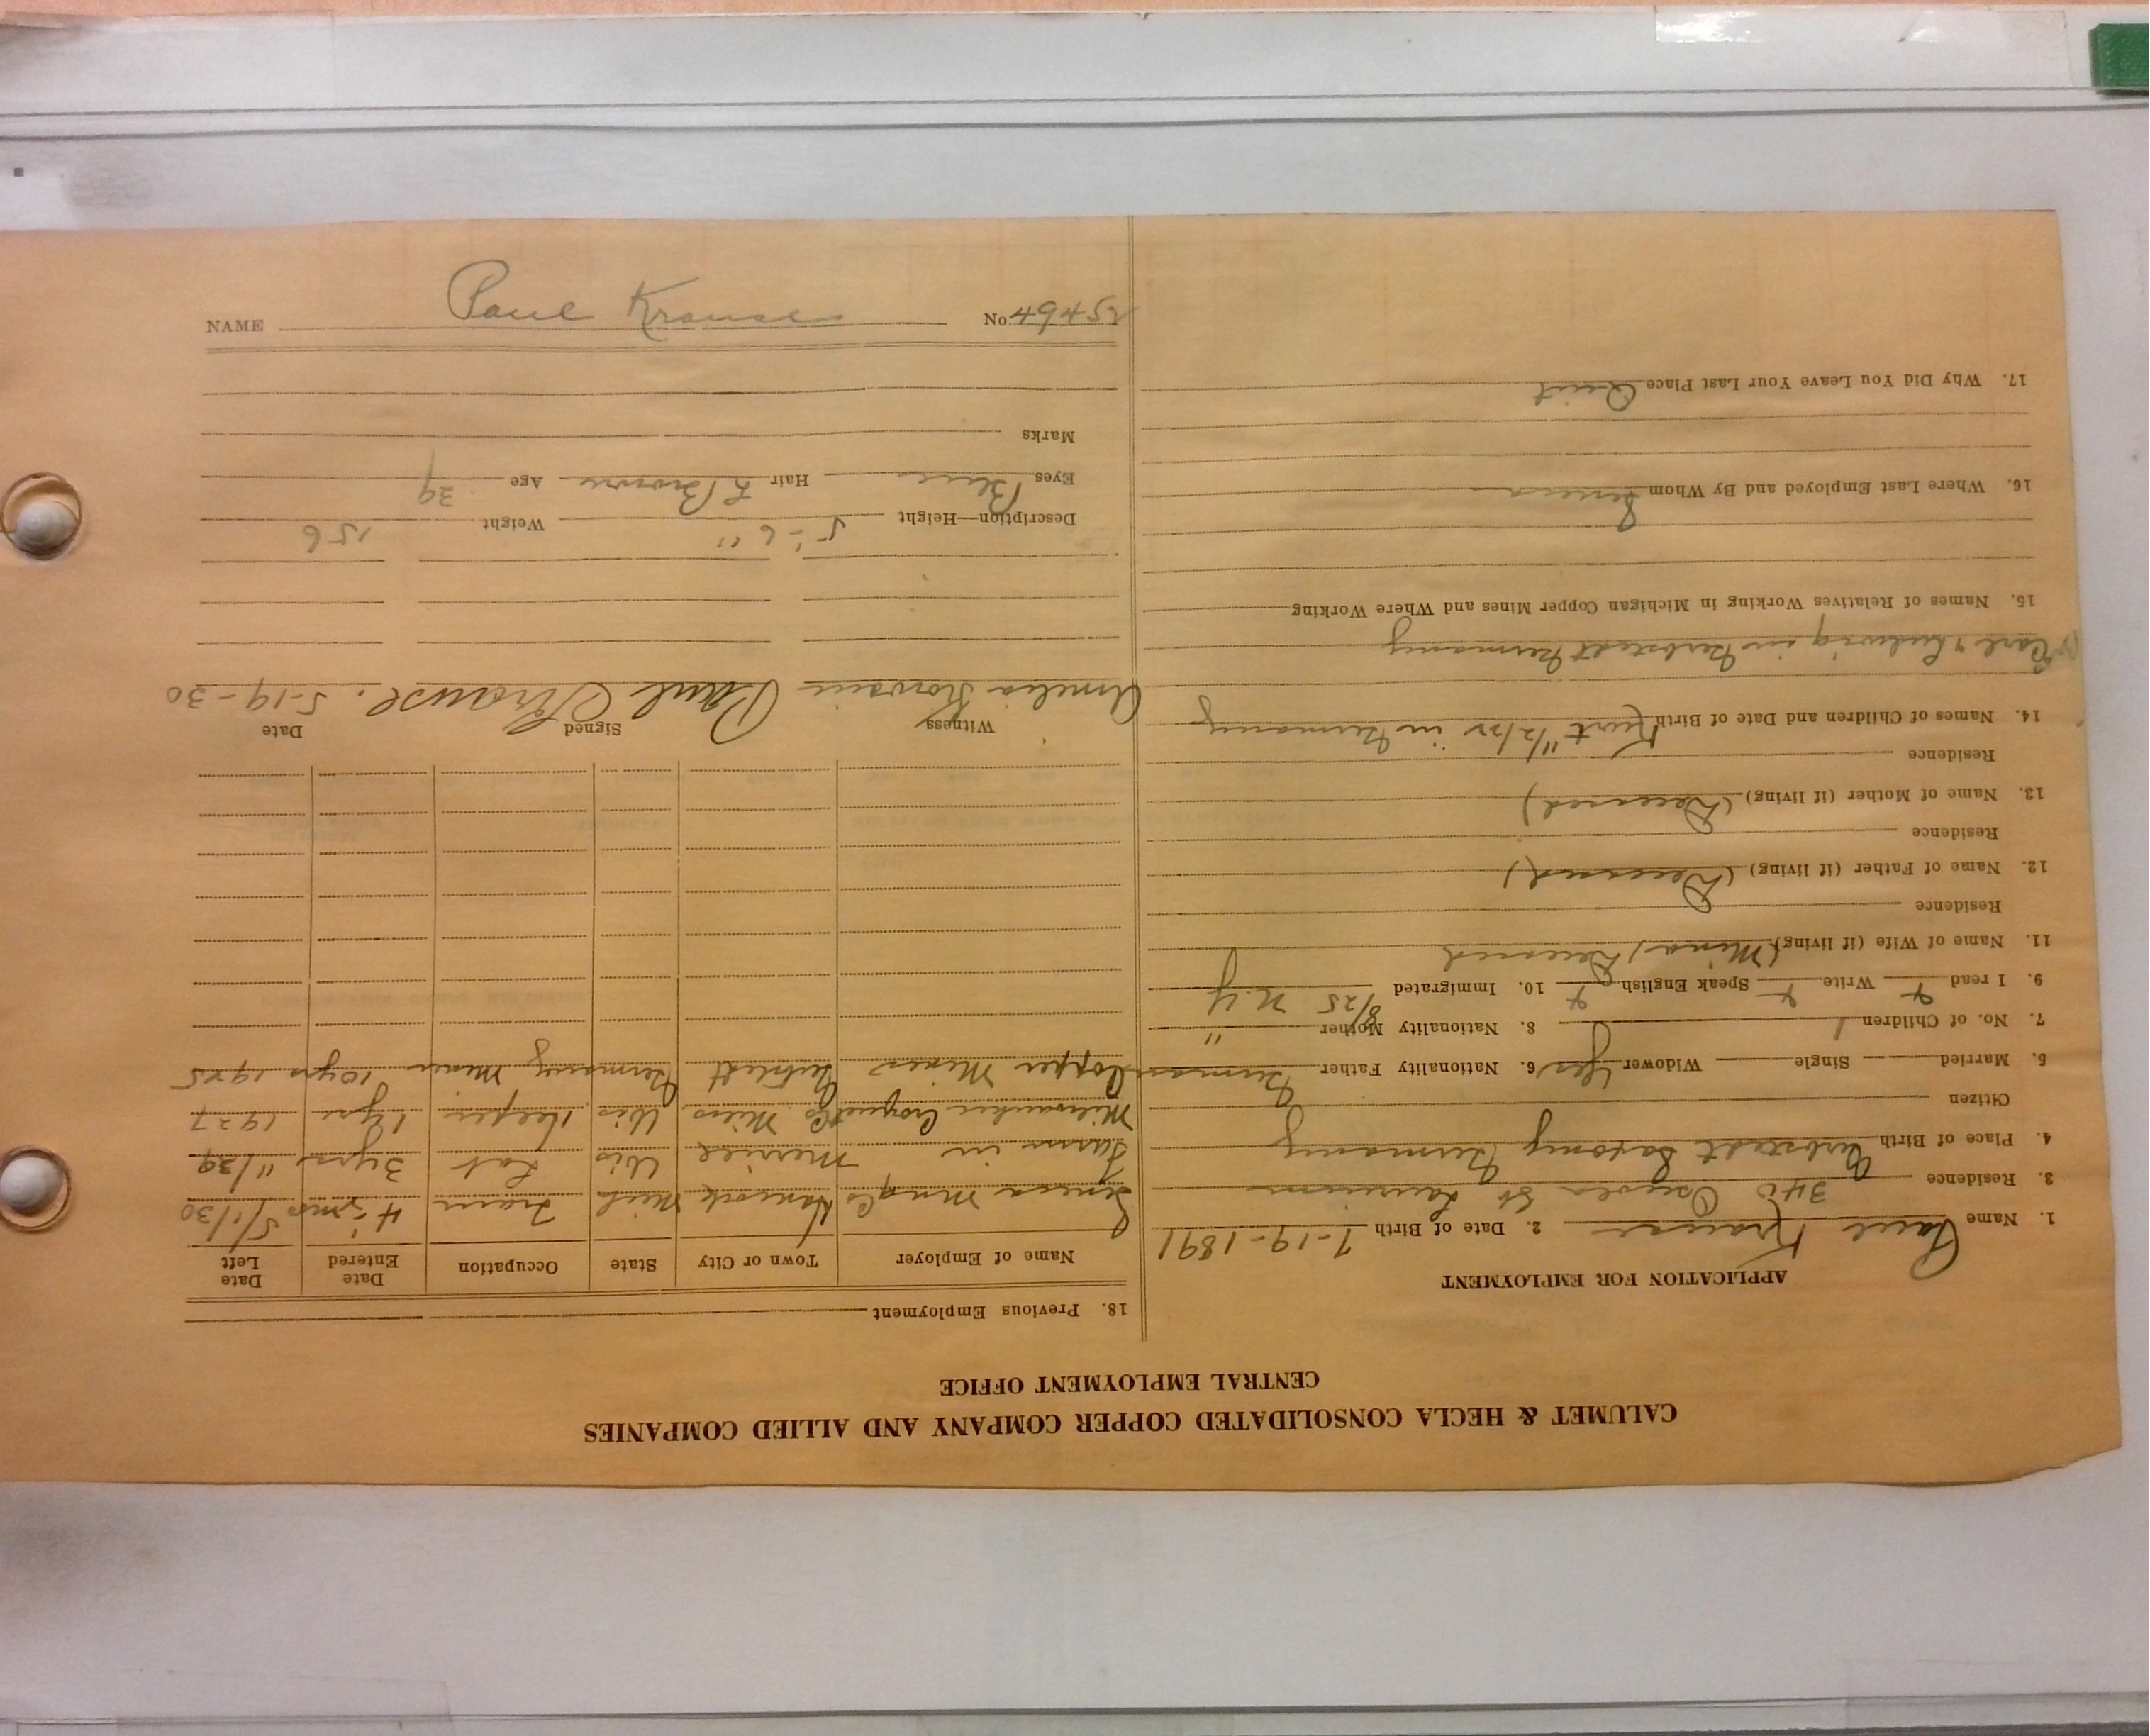 CALUMET & HECLA CONSOLIDATED COPPER COMPANY AND ALLIED COMPANIES
CENTRAL EMPLOYMENT OFFICE
APPLICATION FOR EMPLOYMENT
1. Name Paul Krause 2. Date of Birth 7-19-1891
3. Residence 340 Osceola St Laurium
4. Place of Birth Gerbstedt Saxony Germany
Citizen
5. Married Single Widower Yes 6. Nationality Father German
7. No. of Children 1 8. Nationality Mother "
9. I read + Write + Speak English + 10. Immigrated 8/25 N.Y
11. Name of Wife (if living) (Mina) Deceased
Residence
12. Name of Father (if living) (Deceased)
Residence
13. Name of Mother (if living) (Deceased)
Residence
14. Names of Children and Date of Birth Kurt 11/2/22 in Germany
Carl & Ludwig in Gerbstedt Germany
15. Names of Relatives Working in Michigan Copper Mines and Where Working
16. Where Last Employed and By Whom Seneca
17. Why Did You Leave Your Last Place Quit
18. Previous Employment
Name of Employer Town or City State Occupation Date Entered Date Left
Seneca Mng Co Hancock Mich Tram 4 1/2 mos 5/1/30
Farm in Merrill Wis Lab 3 yrs 11/29
Milwaukee Wis 1 yr 1927
Copper Mines Gerbstedt Germany Miner 10 yrs 1925
Witness Signed Date
Amelia Paul Krause. 5-19-30
Description—Height 5'-6" Weight 156
Eyes Blue Hair L Brown Age 39
Marks
NAME Paul Krause No. 49452